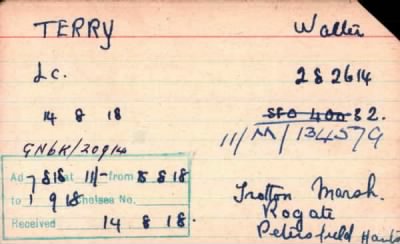 TERRY Walter
Lc. 282614
14 8 18 SFO 400 82.
11/M/134579
GNBK/20914
Ad 7 8 18 at 11/- from 8 8 18
to 1 9 18 Chelsea No.
Received 14 8 18.
Trotton Marsh.
Rogate
Petersfield Hants